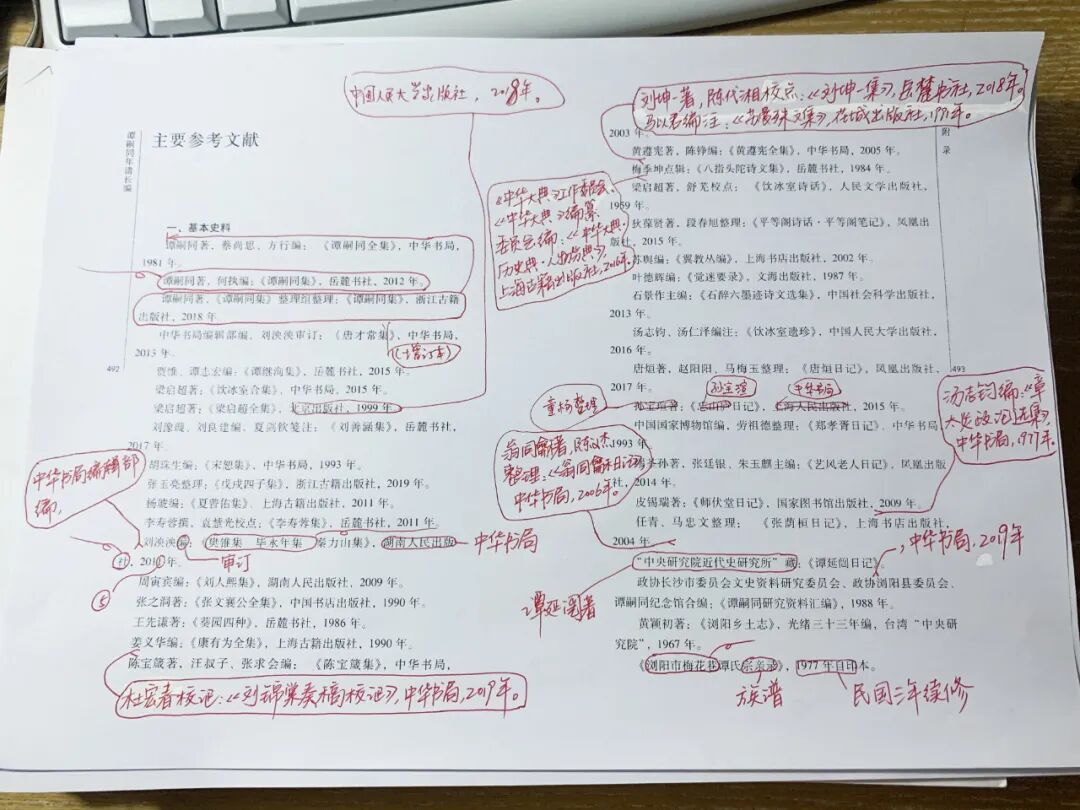 中国人民大学出版社，2018年。
谭嗣同年谱长编
主要参考文献
一、基本史料
谭嗣同著，蔡尚思、方行编：《谭嗣同全集》，中华书局，
1981年。
谭嗣同著，何执编：《谭嗣同集》，岳麓书社，2012年。
谭嗣同著，《谭嗣同集》整理组整理：《谭嗣同集》，浙江古籍
出版社，2018年。
中华书局编辑部编，刘泱泱审订：《唐才常集》，中华书局，
2013年。
（增订本）
492
贾维、谭志宏编：《谭继洵集》，岳麓书社，2015年。
梁启超著：《饮冰室合集》，中华书局，2015年。
梁启超著：《梁启超全集》，北京出版社，1999年
刘豫璇、刘良建编、夏剑钦笺注：《刘善涵集》，岳麓书社，
2017年。
胡珠生编：《宋恕集》，中华书局，1993年。
张玉亮整理：《戊戌四子集》，浙江古籍出版社，2019年。
杨琥编：《夏曾佑集》，上海古籍出版社，2011年。
李寿蓉撰，袁慧光校点：《李寿蓉集》，岳麓书社，2011年。
中华书局编辑部
编，
刘泱泱编：《樊锥集 毕永年集 秦力山集》，湖南人民出版
中华书局
社，2011年。
审订
⑤
周寅宾编：《刘人熙集》，湖南人民出版社，2009年。
张之洞著：《张文襄公全集》，中国书店出版社，1990年。
王先谦著：《葵园四种》，岳麓书社，1986年。
姜义华编：《康有为全集》，上海古籍出版社，1990年。
陈宝箴著，汪叔子、张求会编：《陈宝箴集》，中华书局，
杜宏春校记：《刘锦棠奏稿校记》，中华书局，2019年。
刘坤一著，陈代湘校点：《刘坤一集》，岳麓书社，2018年。
马以君编注：《苏曼殊文集》，花城出版社，1991年。
附录
2003年。
黄遵宪著，陈铮编：《黄遵宪全集》，中华书局，2005年。
梅季坤点辑：《八指头陀诗文集》，岳麓书社，1984年。
梁启超著，舒芜校点：《饮冰室诗话》，人民文学出版社，
1959年。
《中华大典》工作委员会、
《中华大典》编纂
委员会编：《中华大典·
历史典·人物分典》，
上海古籍出版社，2016年。
狄葆贤著，段春旭整理：《平等阁诗话·平等阁笔记》，凤凰出
版社，2015年。
苏舆编：《翼教丛编》，上海书店出版社，2002年。
叶德辉编：《觉迷要录》，文海出版社，1987年。
石景作主编：《石醉六墨迹诗文选集》，中国社会科学出版社，
2013年。
汤志钧、汤仁泽编注：《饮冰室遗珍》，中国人民大学出版社，
2016年。
唐烜著，赵阳阳、马梅玉整理：《唐烜日记》，凤凰出版社，
2017年。
493
孙宝瑄
中华书局
童杨整理
孙宝瑄著：《忘山庐日记》，上海人民出版社，2015年。
中国国家博物馆编，劳祖德整理：《郑孝胥日记》，中华书局，
1993年。
汤志钧编：《章
太炎政论选集》，
中华书局，1977年。
翁同龢著，陈义杰
整理：《翁同龢日记》，
中华书局，2006年。
缪荃孙著，张廷银、朱玉麒主编：《艺风老人日记》，凤凰出版
社，2014年。
皮锡瑞著：《师伏堂日记》，国家图书馆出版社，2009年。
任青、马忠文整理：《张荫桓日记》，上海书店出版社，
2004年。
“中央研究院近代史研究所”藏：《谭延闿日记》。
，中华书局，2019年
谭延闿著
政协长沙市委员会文史资料研究委员会、政协浏阳县委员会、
谭嗣同纪念馆合编：《谭嗣同研究资料汇编》，1988年。
黄颖初著：《浏阳乡土志》，光绪三十三年编，台湾“中央研
究院”，1967年。
《浏阳市梅花巷谭氏宗亲录》，1977年自印本。
族谱
民国三年续修